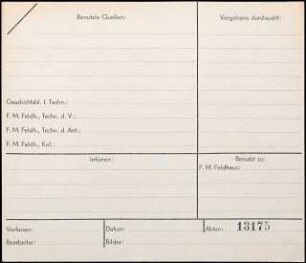 Benutzte Quellen:
Vergebens durchsucht:
Geschichtsbl. f. Techn.:
F. M. Feldh., Techn. d. V.:
F. M. Feldh., Techn. d. Ant.:
F. M. Feldh., Kal.:
Irrtümer:
Benutzt zu:
F. M. Feldhaus:
Verfasser:
Datum:
Akten: 13175
Bearbeiter:
Bilder: